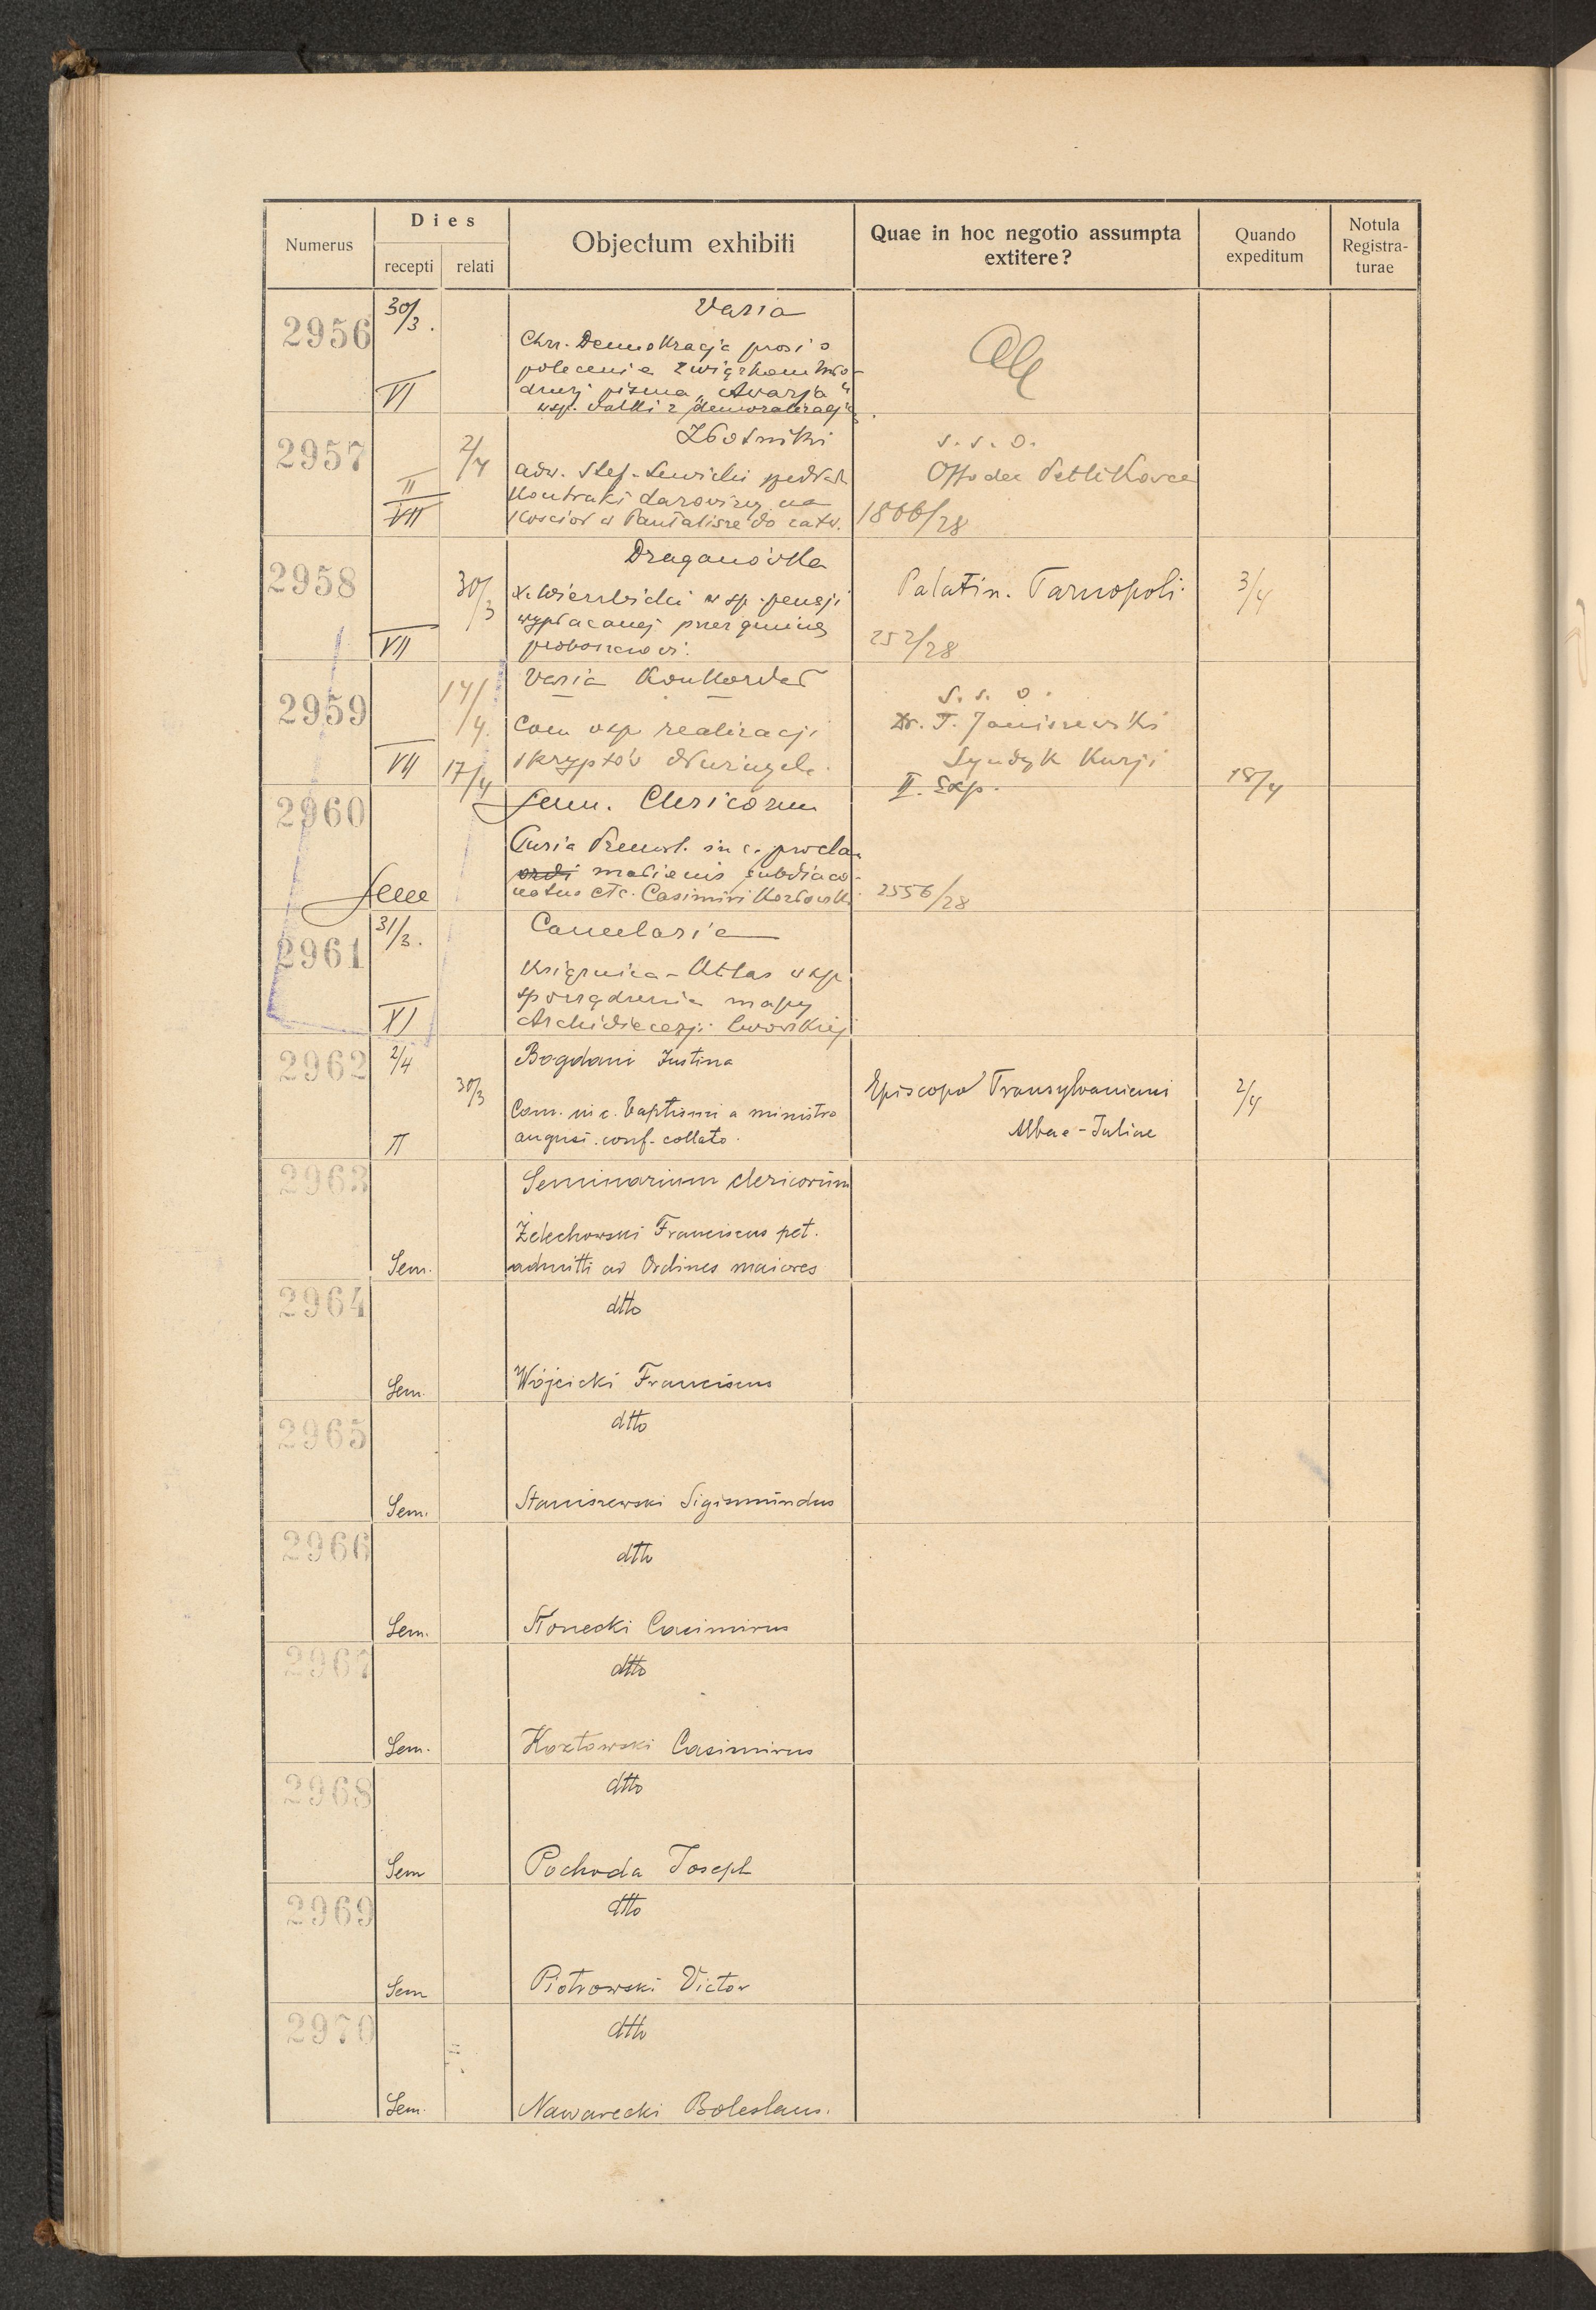 Numerus
Dies
recepti relati
Objectum exhibiti
Quae in hoc negotio assumpta
extitere?
Quando
expeditum
Notula
Registra-
turae
2956
30/3.
VI
Varia
Chrz. Demokracja prosi o
polecenie związkom mło-
pisma
wsp. walki z demoralizacją.
2957
2/4
II
VII
adw. Stef. Lewicki
Kontrakt darowizny na
Kościół w do zatw.
s. s. o.
Offo dec Petlikovce
1866/28
2958
30/3
VII
Draganówka
x. Wierzbicki wsp. pensji
wypłacanej przez gminę
proboszczowi.
Palatin. Tarnopoli
252/28
3/4
2959
14/4.
VII
17/4
Varia Konkordat
Com wsp. realizacji
skryptów
s. s. o.
Dr. T. Janiszewski
Syndyk Kurji
II. Exp.
18/4
2960
Sem
Sem. Clericorum
Curia Premisl. in c. procla-
ordi mationis subdiaco-
natus etc. Casimiri Kozłowski
2556/28
2961
31/3.
XI
Cancelaria
Książnica-Atlas wsp
sporządzenia mapy
Archidiecezji lwowskiej
2962
2/4
30/3
II
Bogdani Justina
Com. in c. baptismi a ministro
august. conf. collato.
Episcopo Transylvaniensi
Albae-Juliae
2/4
2963
Sem.
Seminarium clericorum
Żelechowski Franciscus pet.
admitti ad Ordines maiores
2964
Sem.
dtto
Wójcicki Franciscus
2965
Sem.
dtto
Staniszewski Sigismundus
2966
Sem.
dtto
Słonecki Casimirus
2967
Sem.
dtto
Kozłowski Casimirus
2968
Sem
dtto
Pochoda Joseph
2969
Sem
dtto
Piotrowski Victor
2970
Sem.
dtto
Nawarecki Boleslaus.